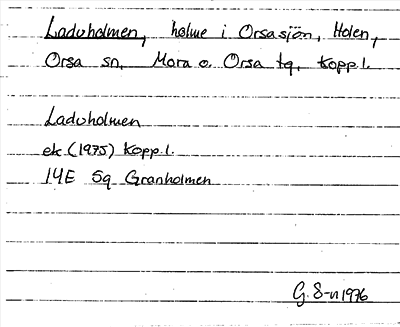 Laduholmen, holme i Orsasjön, Holen,
Orsa sn, Mora o. Orsa tg, Kopp.l.
Laduholmen
ek (1975) Kopp.l.
14E 5g Granholmen
G. S-n 1976